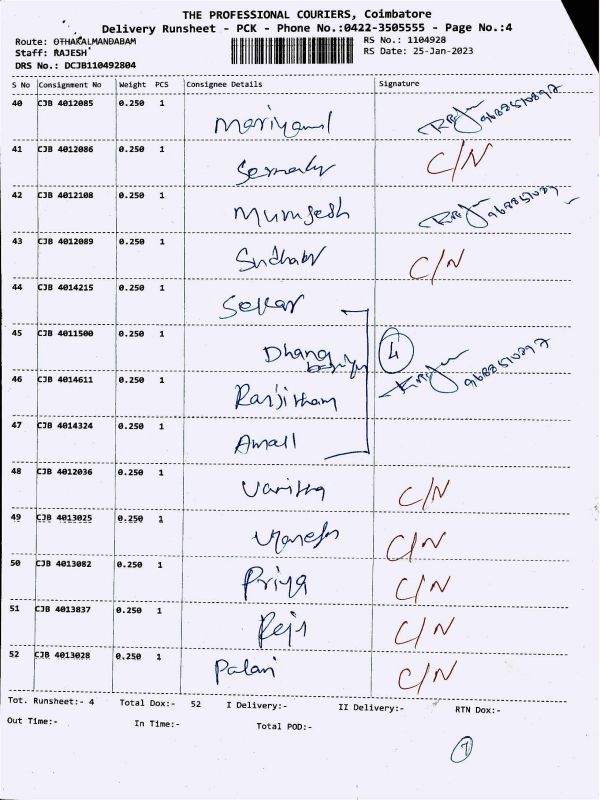 THE PROFESSIONAL COURIERS, Coimbatore
Delivery Runsheet - PCK - Phone No.:0422-3505555 - Page No.:4
Route: OTHAKALMANDABAM
RS No.: 1104928
Staff: RAJESH
RS Date: 25-Jan-2023
DRS No.: DCJB110492804
S No Consignment No Weight PCS Consignee Details Signature
40 CJB 4012085 0.250 1
41 CJB 4012086 0.250 1 C/N
42 CJB 4012108 0.250 1
43 CJB 4012089 0.250 1 C/N
44 CJB 4014215 0.250 1 Sekar
45 CJB 4011500 0.250 1 Dhana 4
46 CJB 4014611 0.250 1 Ranjitham
47 CJB 4014324 0.250 1 Amall
48 CJB 4012036 0.250 1 Vanitha C/N
49 CJB 4013025 0.250 1 C/N
50 CJB 4013082 0.250 1 Priya C/N
51 CJB 4013837 0.250 1 C/N
52 CJB 4013028 0.250 1 Palani C/N
Tot. Runsheet:- 4 Total Dox:- 52 I Delivery:- II Delivery:- RTN Dox:-
Out Time:- In Time:- Total POD:-
7